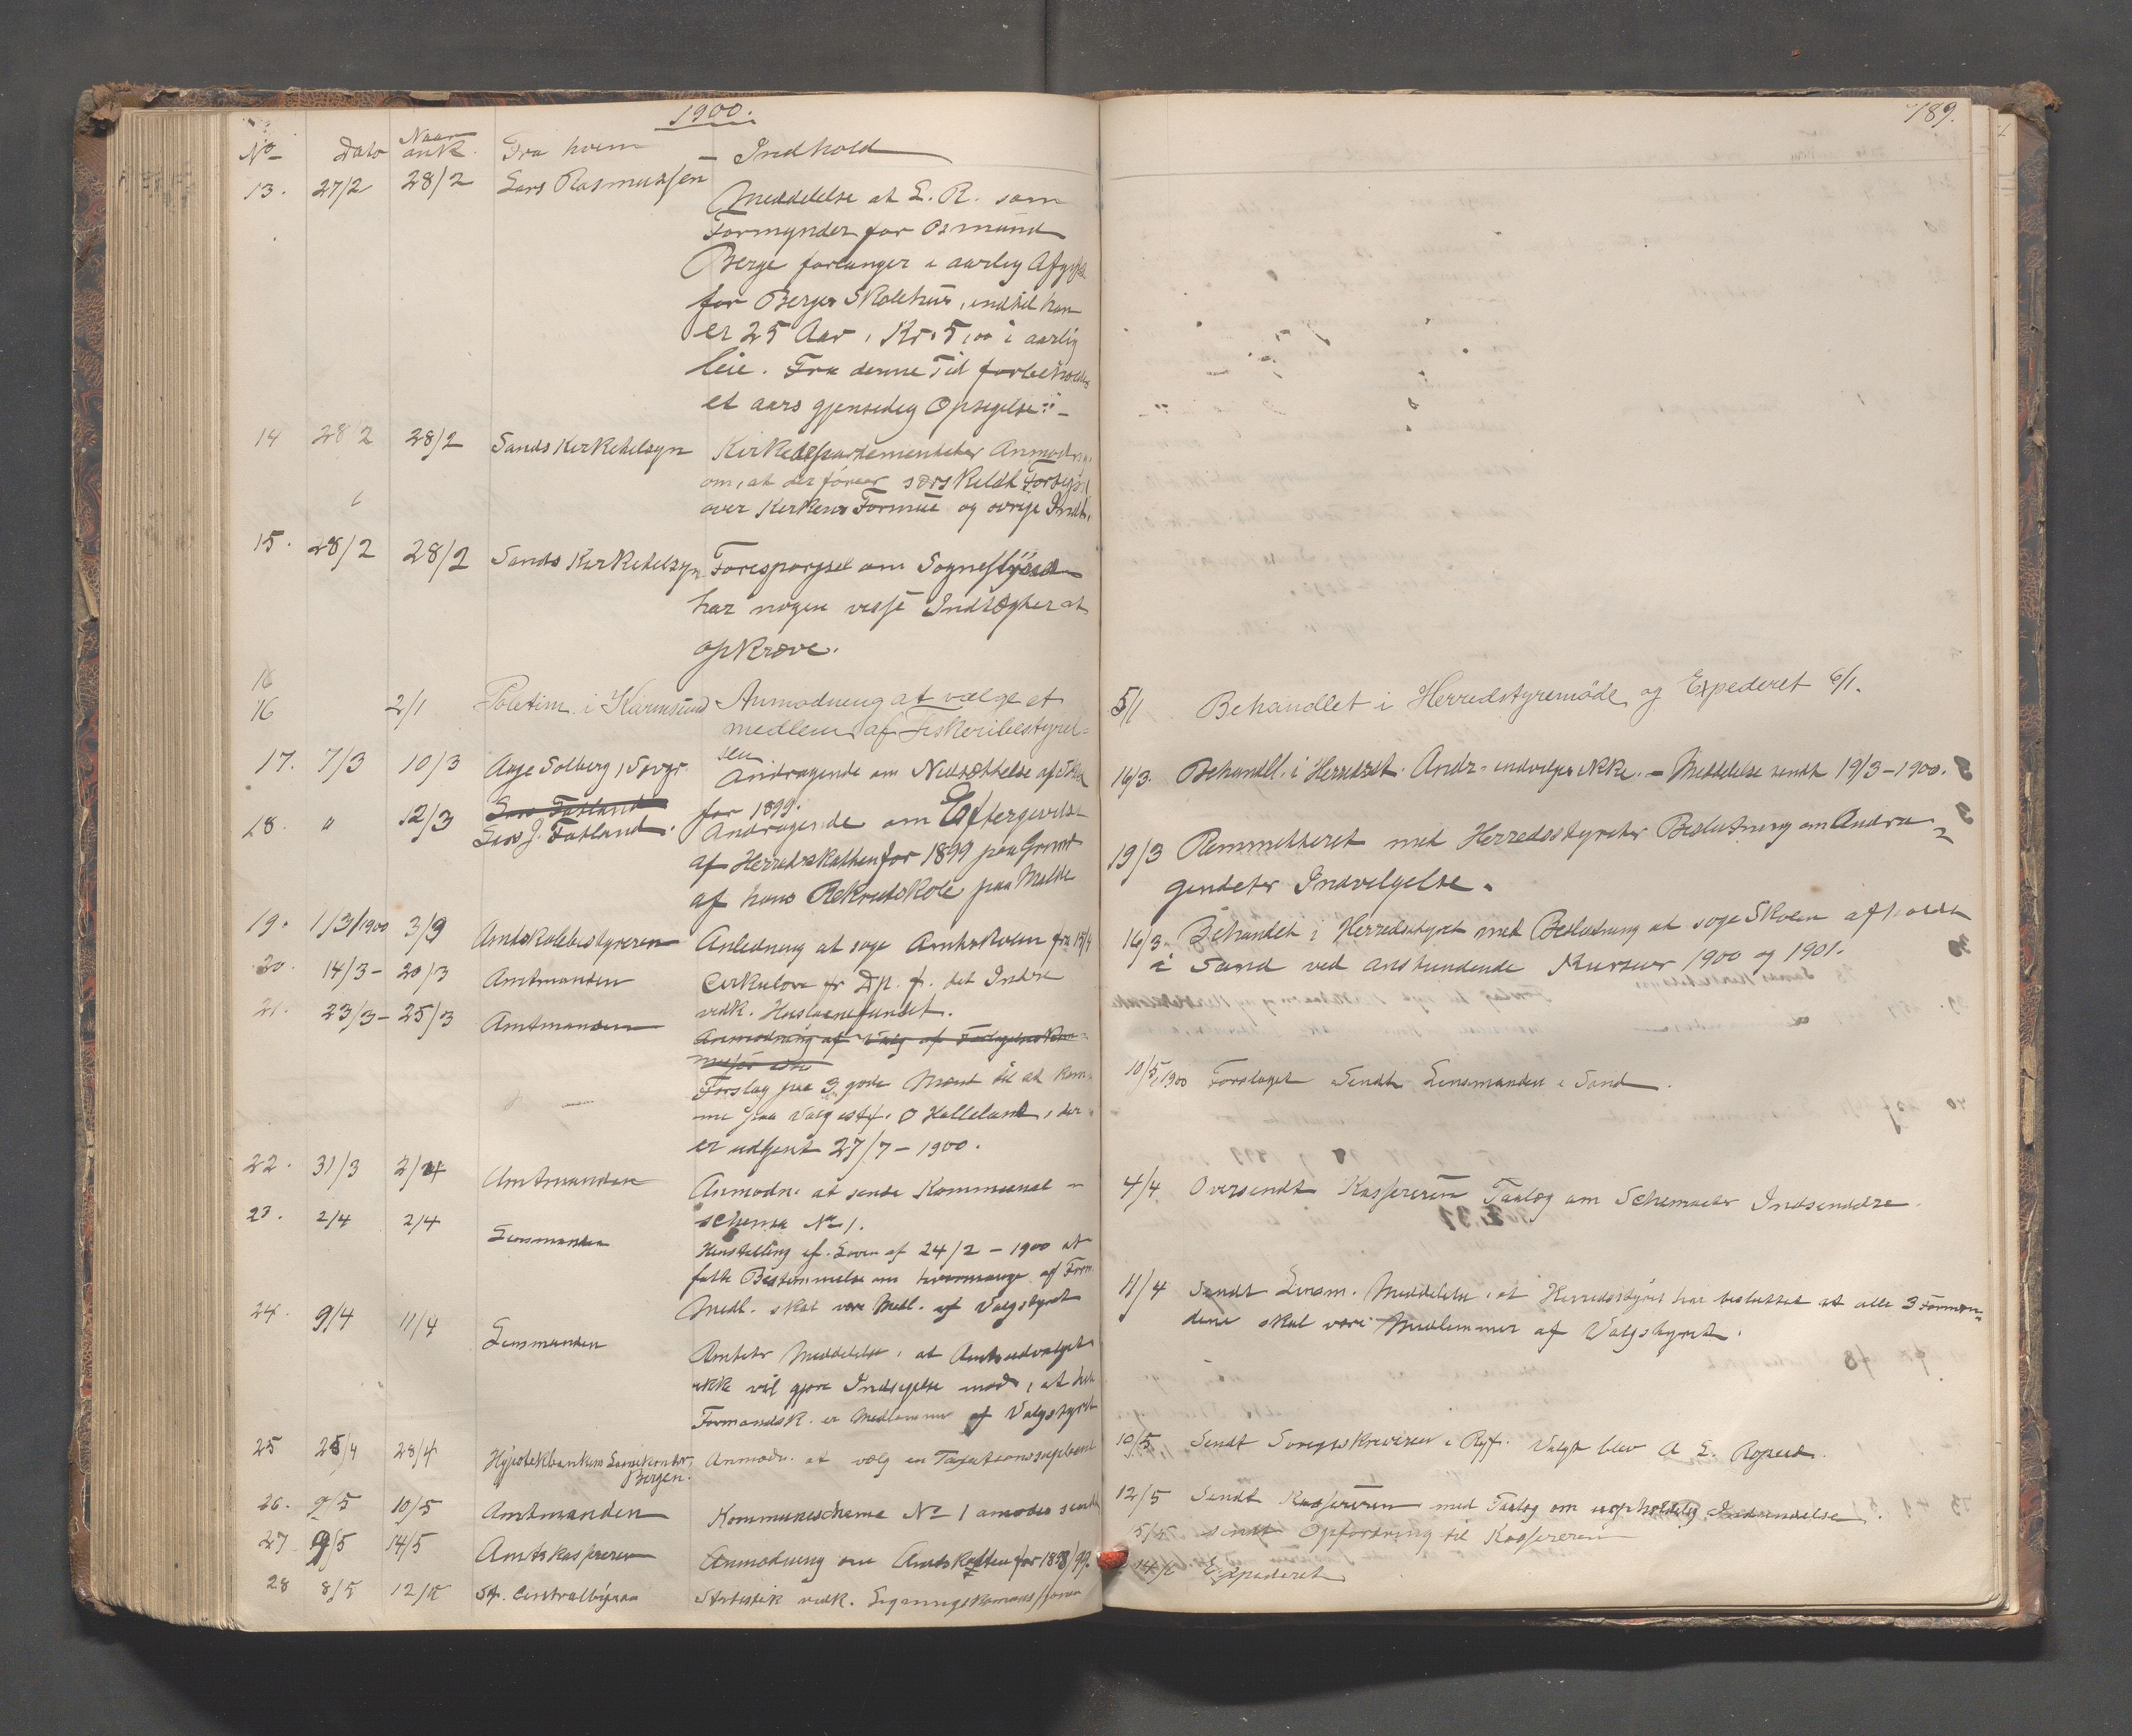 1900.
No Dato Naar ank. Fra hvem - Indhold
13. 27/2 28/2 Lars Rasmussen
Meddelelse at L. R. som
Formynder for Osmund
Berge forlanger i aarlig Afgift
for Berges Skolehus, indtil han
er 25 Aar, Kr. 5,00 i aarlig
leie. Fra denne Tid forbeholdes
et aars gjensedig Opsigelse
14 28/2 28/2 Sands Kirketilsyn Kirkedepartementeter Anmodn.
om, at der føres særskildt
over Kirkens Formue og øvrige Indt.
15. 28/2 28/2 Sands Kirketilsyn Forespørgsel om
har nogen visse Indtægter at
opkræve.
16
16 2/1 Politim. i Karmsund Anmodning at vælge et
medlem af fiskeribestyrel=
sen
17. 7/3 10/3 Aage Solberg, Andragende om Nedsættelse af Skat
for 1899.
18. " 12/3 Lars J. Fatland. Andragende om Eftergivelse
af Herredsskatten for 1899 paa Grund
af hans Rekrutskole paa Malde
19. 1/3/1900 3/9 Amtskolebestyreren Anledning at søge Amtsskolen fra
20. 14/3 - 20/3 Amtmanden Cirkulære fr Dp. f. det Indre
vedk. Huslaanefundet.
21. 23/3 - 25/3 Amtmanden
Anmodning af Valg af
Forslag paa 3 gode Mænd til at kom=
me paa Valg eftf. O Halleland, der
er udtjent 27/7 - 1900.
22. 31/3 2/4 Amtmanden Anmodn. at sende Kommunal=
schema No 1.
23. 2/4 2/4 Lensmanden
Henstilling ef. Loven af 24/2 - 1900 at
fatte Bestemmelse om hvormange af Form.
Medl. skal være Medl. af Valgstyret
24. 9/4 11/4 Lensmanden
Amtets Meddelelse, at Amtsudvalget
ikke vil gjøre Indsigelse mod, at hele
Formandsk. er Medlemmer af Valgstyret
25 25/4 28/4 Hypotekbankens Lånekontor, Bergen. Anmodn. at vælg en
26. 9/5 10/5 Amtmanden Kommuneschema No 1 amodes sendt
27 9/5 14/5 Amtskassereren Anmodning om Amtskatten for 1898/99.
28 8/5 12/5 St. Centralbyraa Statistik vedk.
189.
5/1 Behandlet i Herredstyremöde og Expederet 6/1.
16/3. Behandl. i Herredst. Andr. indvilges ikke. - Meddelelse sendt 19/3 - 1900.
19/3 Remmitteret med Herredsstyrets Beslutning om Andra=
gendets Indvilgelse.
16/3. Behandet i Herredsstyret med Beslutning at søge Skolen afholdt
i Sand ved anstundende Kursuer 1900 og 1901.
10/5 1900 Forslaget Sendt Lensmanden i Sand.
4/4 Oversendt Kassereren Paalæg om Schemaets Indsendelse.
11/4 Sendt Lensm. Meddelelse, at Herredsstyret har besluttet at alle 3 Formæn=
dene skal være Medlemmer af Valgstyret.
10/5 Sendt Sorenskriveren i Ryf. Valgt blev A L.
12/5 Sendt Kassereren med Paalæg om uopholdelig Indsendelse.
15/5 sendt Opfordring til Kassereren
Expederet